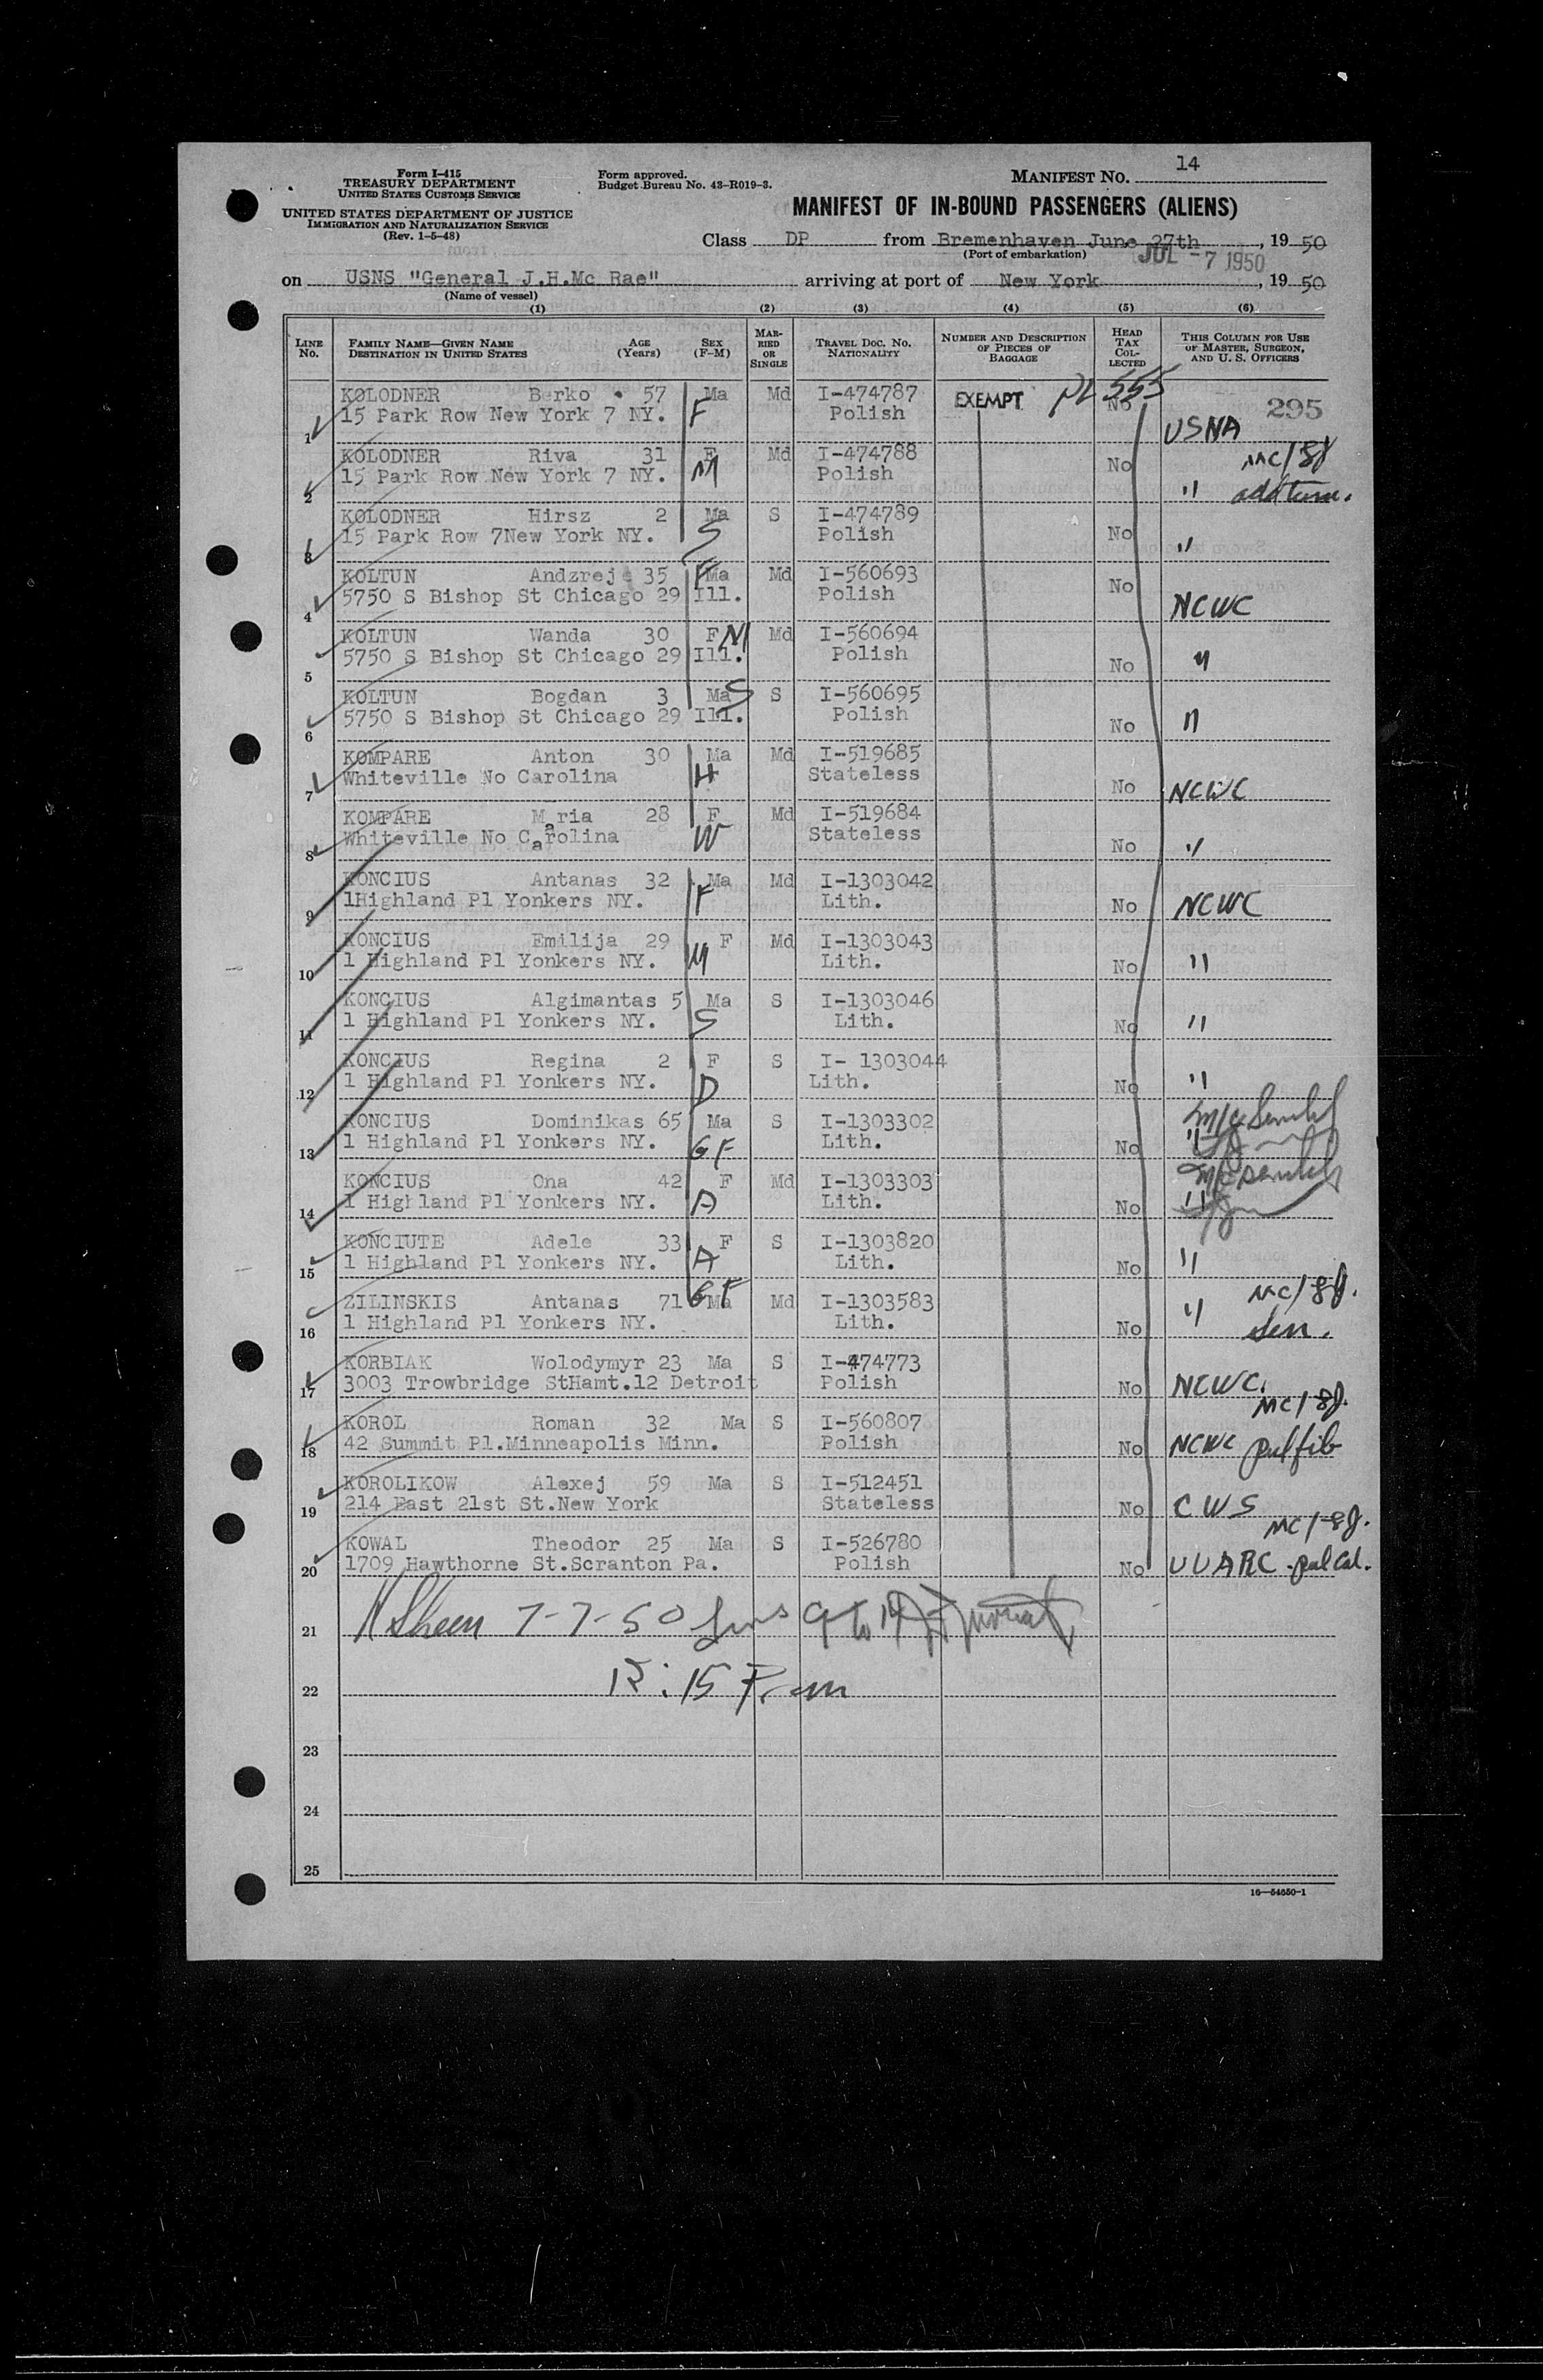 Form I-415
TREASURY DEPARTMENT
UNITED STATES CUSTOMS SERVICE
UNITED STATES DEPARTMENT OF JUSTICE
IMMIGRATION AND NATURALIZATION SERVICE
(Rev. 1-5-48)
Form approved.
Budget Bureau No. 43-R019-3.
MANIFEST NO. 14
MANIFEST OF IN-BOUND PASSENGERS (ALIENS)
Class DP from Bremenhaven June 27th, 19 50
(Port of embarkation)
JUL -7 1950
on USNS "General J.H.Mc Rae" arriving at port of New York, 19 50
(Name of vessel)
(1) (2) (3) (4) (5) (6)
LINE No. FAMILY NAME—GIVEN NAME DESTINATION IN UNITED STATES AGE (Years) SEX (F-M) MARRIED OR SINGLE TRAVEL DOC. NO. NATIONALITY NUMBER AND DESCRIPTION OF PIECES OF BAGGAGE HEAD TAX COLLECTED THIS COLUMN FOR USE OF MASTER, SURGEON, AND U. S. OFFICERS
KOLODNER Berko 57 Ma Md I-474787 EXEMPT PL 555 No 295
1 15 Park Row New York 7 NY. F Polish USNA
KOLODNER Riva 31 F Md I-474788 No MC/8J
2 15 Park Row New York 7 NY. M Polish "
KOLODNER Hirsz 2 Ma S I-474789
3 15 Park Row 7New York NY. S Polish No "
KOLTUN Andzrej 35 F Ma Md I-560693 No
4 5750 S Bishop St Chicago 29 Ill. Polish NCWC
KOLTUN Wanda 30 F M Md I-560694
5 5750 S Bishop St Chicago 29 Ill. Polish No "
KOLTUN Bogdan 3 Ma S S I-560695
6 5750 S Bishop St Chicago 29 Ill. Polish No "
KOMPARE Anton 30 Ma Md I-519685
7 Whiteville No Carolina H Stateless No NCWC
KOMPARE Maria 28 F Md I-519684
8 Whiteville No Carolina W Stateless No "
KONCIUS Antanas 32 Ma Md I-1303042
9 1Highland Pl Yonkers NY. F Lith. No NCWC
KONCIUS Emilija 29 F Md I-1303043
10 1 Highland Pl Yonkers NY. M Lith. No "
KONCIUS Algimantas 5 Ma S I-1303046
11 1 Highland Pl Yonkers NY. S Lith. No "
KONCIUS Regina 2 F S I- 1303044
12 1 Highland Pl Yonkers NY. D Lith. No "
KONCIUS Dominikas 65 Ma S I-1303302
13 1 Highland Pl Yonkers NY. GF Lith. No "
KONCIUS Ona 42 F Md I-1303303
14 1 Highland Pl Yonkers NY. A Lith. No "
KONCIUTE Adele 33 F S I-1303820
15 1 Highland Pl Yonkers NY. A Lith. No "
ZILINSKIS Antanas 71 GF Ma Md I-1303583 MC/8J.
16 1 Highland Pl Yonkers NY. Lith. No " Sen.
KORBIAK Wolodymyr 23 Ma S I-474773
17 3003 Trowbridge StHamt.12 Detroit Polish No NCWC.
KOROL Roman 32 Ma S I-560807 MC/8J.
18 42 Summit Pl.Minneapolis Minn. Polish No NCWC pul fib
KOROLIKOW Alexej 59 Ma S I-512451
19 214 East 21st St.New York Stateless No CWS
KOWAL Theodor 25 Ma S I-526780 MC/8J.
20 1709 Hawthorne St.Scranton Pa. Polish No UUARC pul cal.
21 Sheen 7-7-50 9 to 14
22 12:15 P.m
23
24
25
16—54650-1